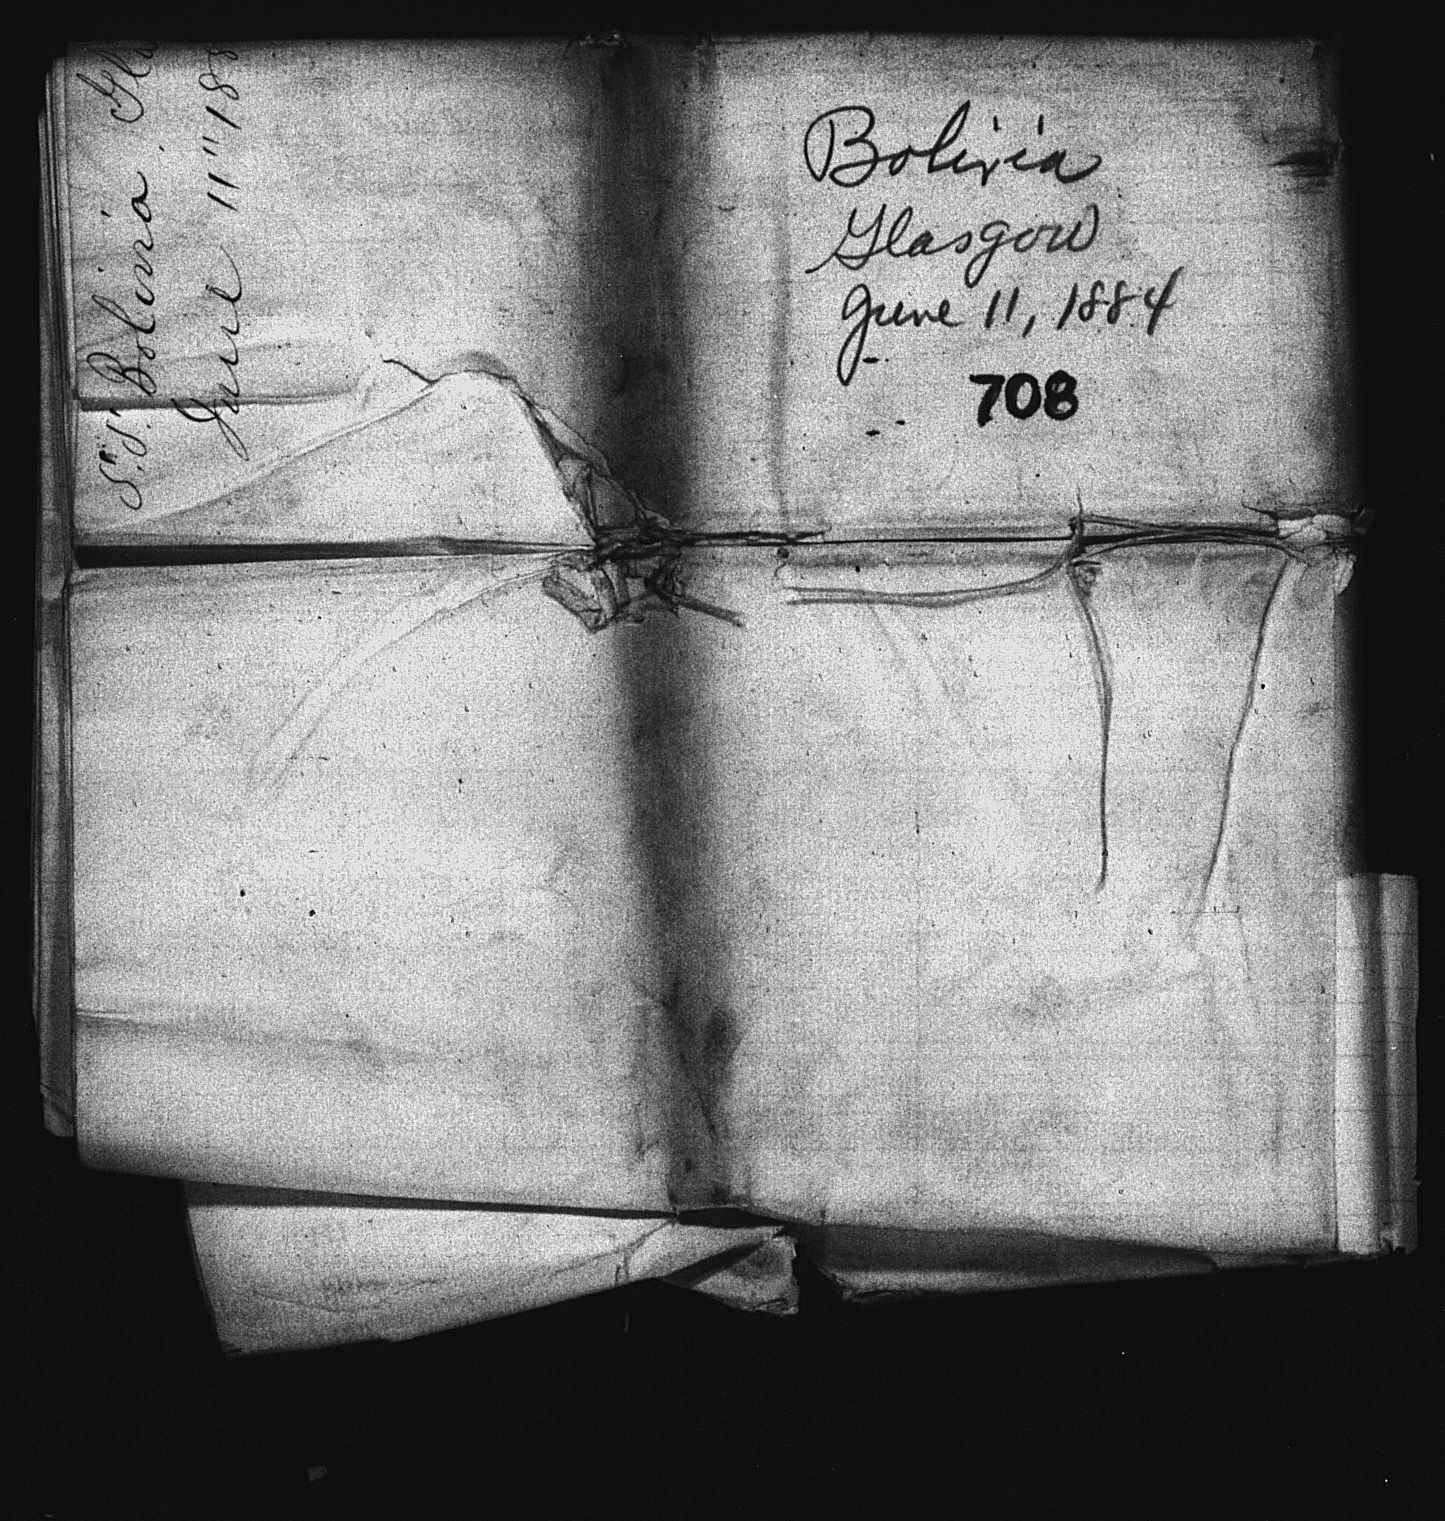 S.S. Bolivia. Gla
June 11" 188
Bolivia
Glasgow
June 11, 1884
708